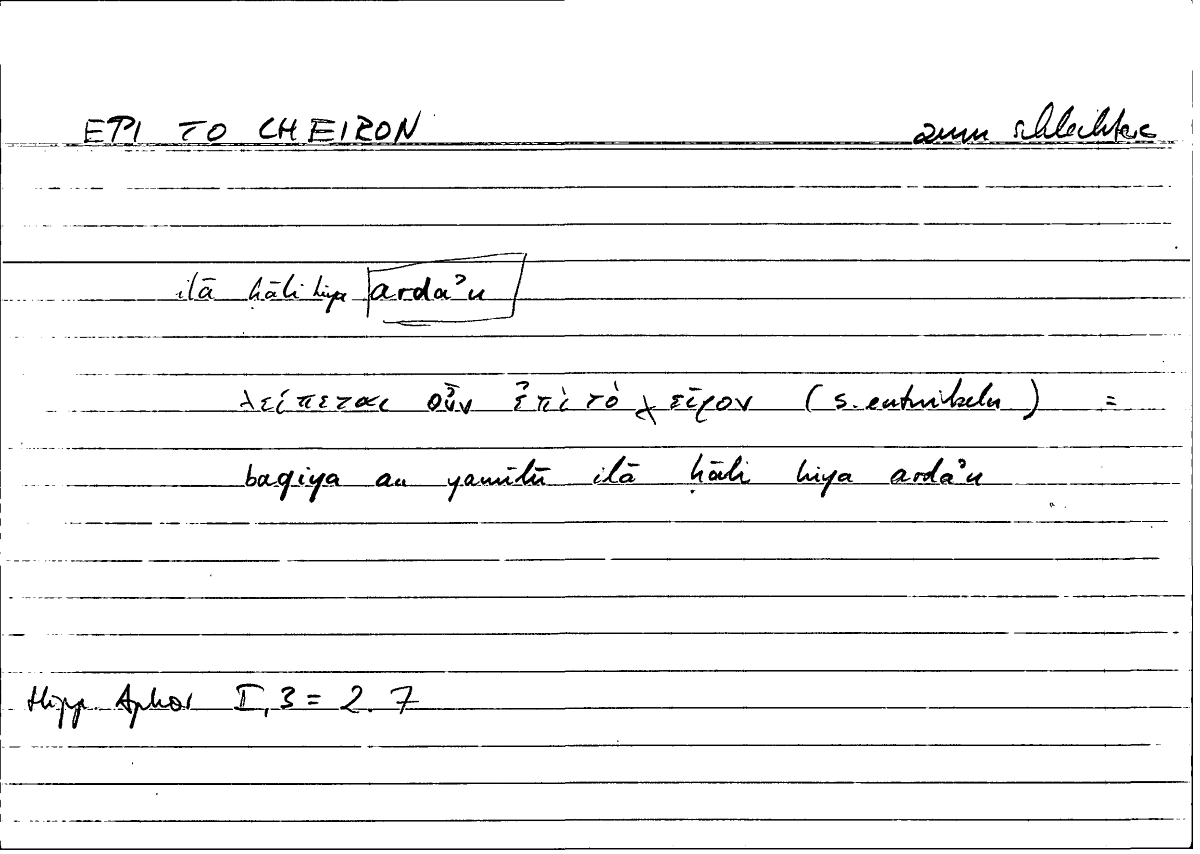 EPI TO CHEIRON zum Schlechtere
ilā ḥāli hiya ardaʾu
λείπεται οὖν ἐπὶ τὸ χεῖρον (s. entwickeln) =
baqiya an yamīlū ilā ḥāli hiya ardaʾu
Hipp Aphor I,3 = 2.7